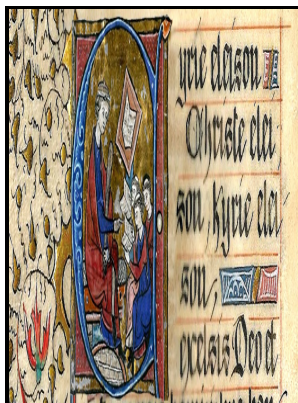 yrie eleison
Christe elei
son, kyrie elei
son,
excelsis Deo et